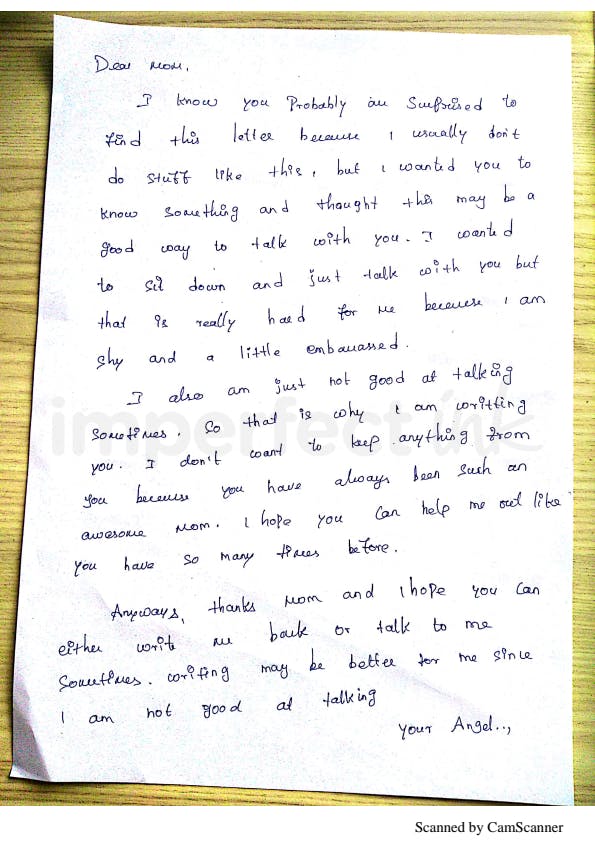 Dear mom,
I know you Probably are Surprised to
find this letter because I usually don't
do stuff like this, but I wanted you to
know something and thought this may be a
good way to talk with you. I wanted
to sit down and just talk with you but
that is really hard for me because I am
shy and a little embarrassed.
I also am just not good at talking
sometimes. So that is why I am writting
you. I don't want to keep anything from
you because you have always been such an
awesome mom. I hope you can help me out like
you have so many times before.
Anyways, thanks mom and I hope you can
either write me back or talk to me
sometimes. writing may be better for me since
I am not good at talking
your Angel..,
imperfect ink
Scanned by CamScanner